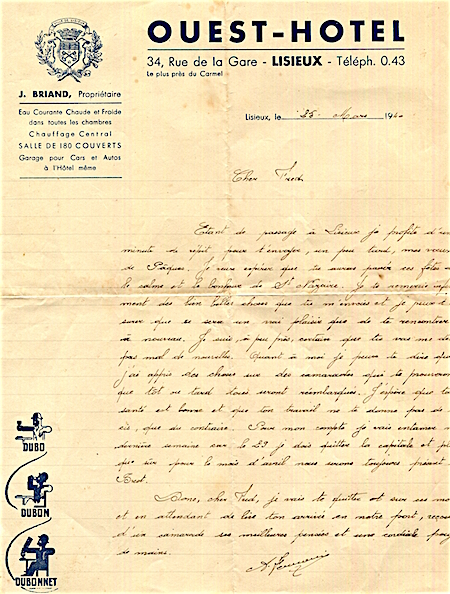 OUEST-HOTEL
34, Rue de la Gare - LISIEUX - Téléph. 0.43
Le plus près du Carmel
J. BRIAND, Propriétaire
Eau Courante Chaude et Froide
dans toutes les chambres
Chauffage Central
SALLE DE 180 COUVERTS
Garage pour Cars et Autos
à l'Hôtel même
Lisieux, le 25 Mars 194
Cher Fred
Etant de passage à Lisieux je profite d'une
minute de répit pour t'envoyer, un peu tard, mes voeux
de Pâques. Je veux espérer que tu auras passé ces fêtes
le calme et le bonheur de St Nazaire. Je te remercie
ment des bien belles choses que tu m'envoies et je puis
surer que ce sera un vrai plaisir que de te rencontrer
à nouveau. Je suis à peu près certain que tu vas me
pas mal de nouvelles. Quant à moi je peux te dire que
j'ai appris des choses sur des camarades que
que tôt ou tard leurs seront réembarqués. J'espère que ta
santé est bonne et que ton travail ne te donne pas de
cis, que du contraire. Pour mon compte je vais entamer
dernière semaine car le 29 je dois quitter la capitale et
que six pour le mois d'avril nous serons toujours
Brest.
Donc, cher Fred, je vais te quitter et sur ces
et en attendant de lire ton arrivée en notre port,
d'un camarade ses meilleures pensées et une cordiale
de mains.
DUBO
DUBON
DUBONNET